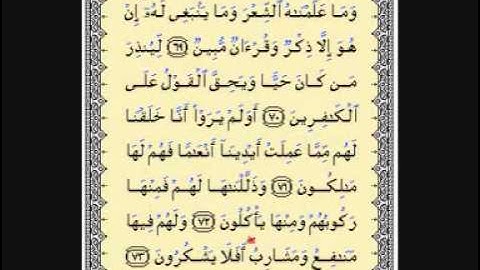 وَمَا عَلَّمْنَٰهُ ٱلشِّعْرَ وَمَا يَنۢبَغِى لَهُۥٓ إِنْ
هُوَ إِلَّا ذِكْرٌ وَقُرْءَانٌ مُّبِينٌ ﴿٦٩﴾ لِّيُنذِرَ
مَن كَانَ حَيًّا وَيَحِقَّ ٱلْقَوْلُ عَلَى
ٱلْكَٰفِرِينَ ﴿٧٠﴾ أَوَلَمْ يَرَوْا۟ أَنَّا خَلَقْنَا
لَهُم مِّمَّا عَمِلَتْ أَيْدِينَآ أَنْعَٰمًا فَهُمْ لَهَا
مَٰلِكُونَ ﴿٧١﴾ وَذَلَّلْنَٰهَا لَهُمْ فَمِنْهَا
رَكُوبُهُمْ وَمِنْهَا يَأْكُلُونَ ﴿٧٢﴾ وَلَهُمْ فِيهَا
مَنَٰفِعُ وَمَشَارِبُ أَفَلَا يَشْكُرُونَ ﴿٧٣﴾